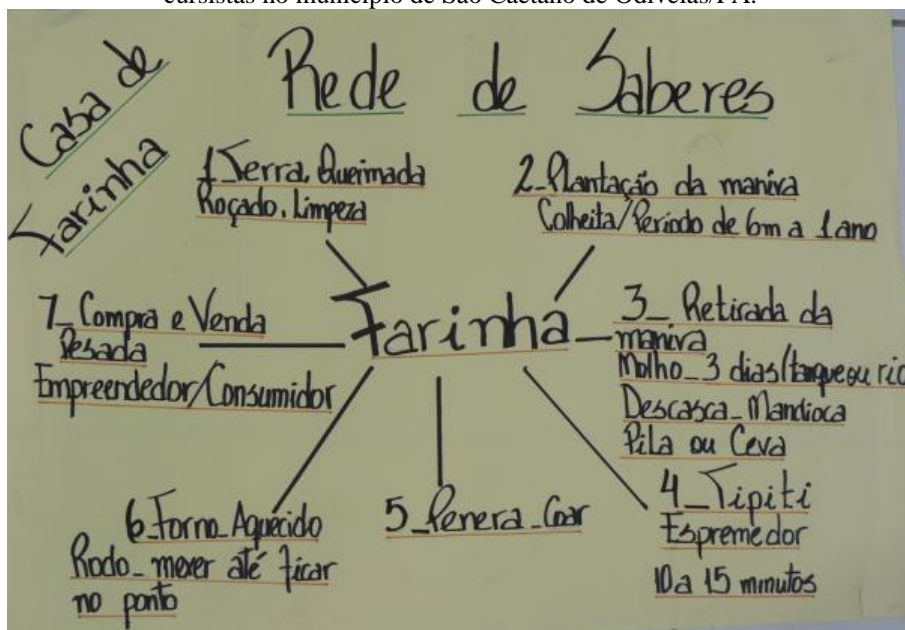 cursistas no município de São Caetano de Odivelas/PA.
Casa de
Farinha
Rede de Saberes
1_Terra. Queimada
Roçado. Limpeza
2_Plantação da maniva
Colheita/Período de 6m a 1 ano
Farinha
3_ Retirada da
maniva
Molho_3 dias/tanque ou rio
Descasca_Mandioca
Pila ou Ceva
4_Tipiti
Espremedor
10 a 15 minutos
5_Penera_Coar
6_Forno_Aquecido
Rodo_mexer até ficar
no ponto
7_Compra e Venda
Pesada
Empreendedor/Consumidor